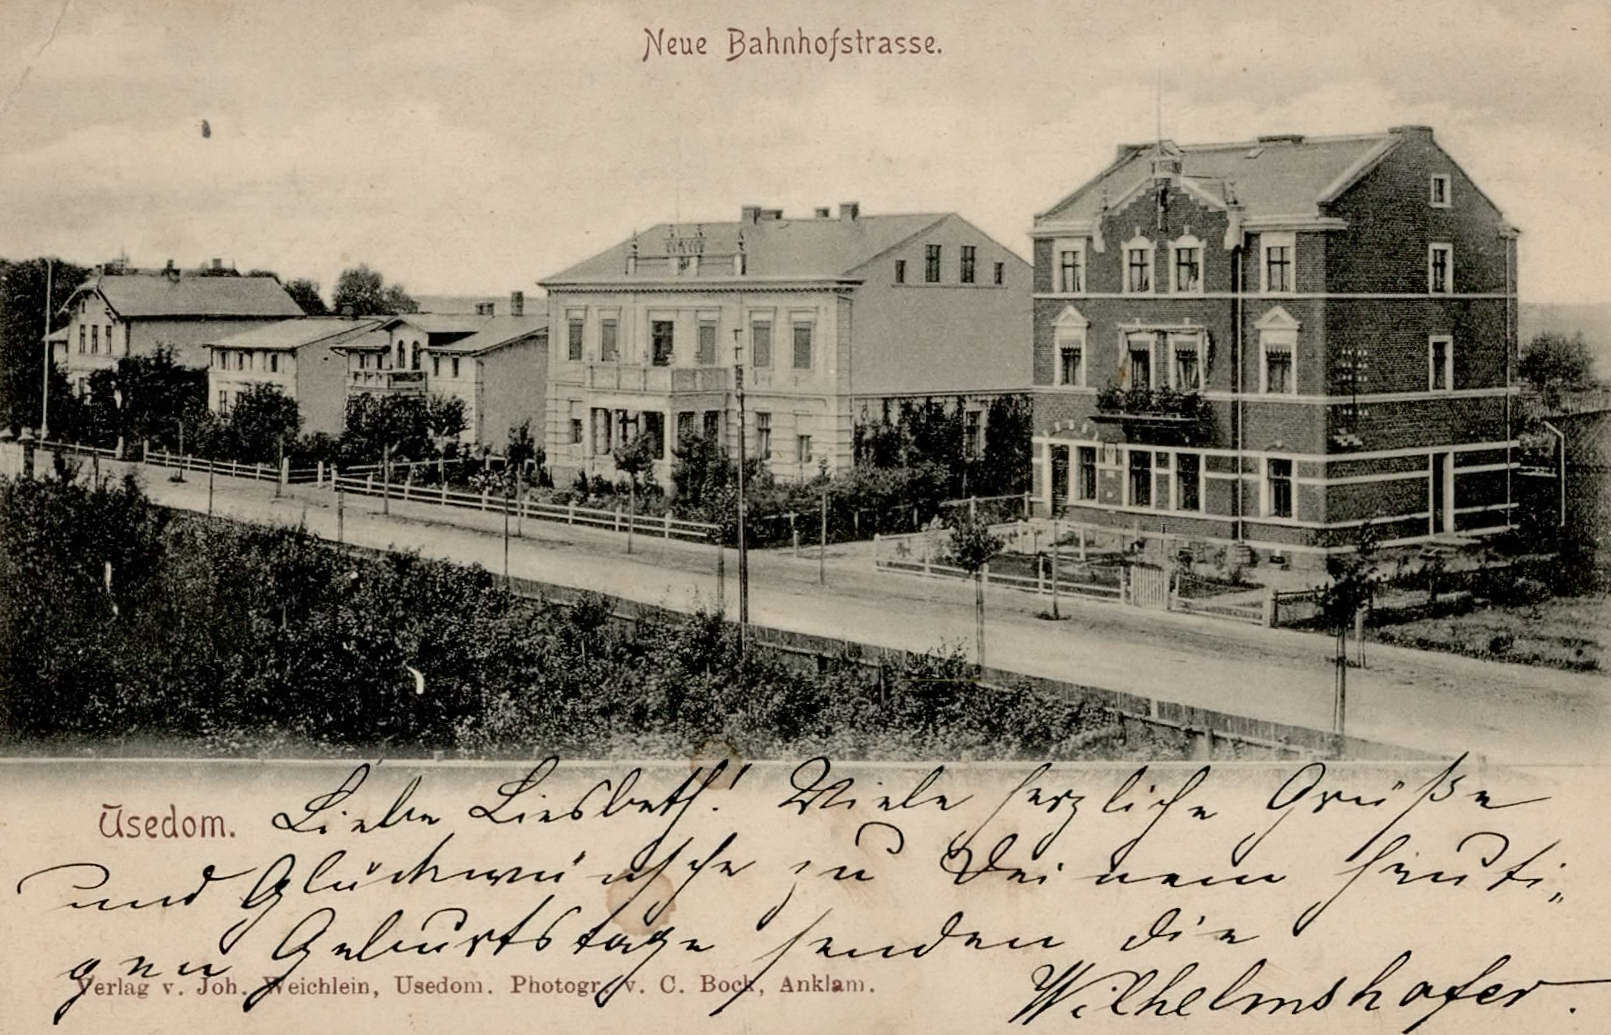 Neue Bahnhofstrasse.
Usedom. Liebe Liesbeth! Viele herzliche Grüße
und Glückwünsche zu Deinem heuti-
gen Geburtstage senden die
Wilhelmshofer.
Verlag v. Joh. Weichlein, Usedom. Photogr. v. C. Bock, Anklam.